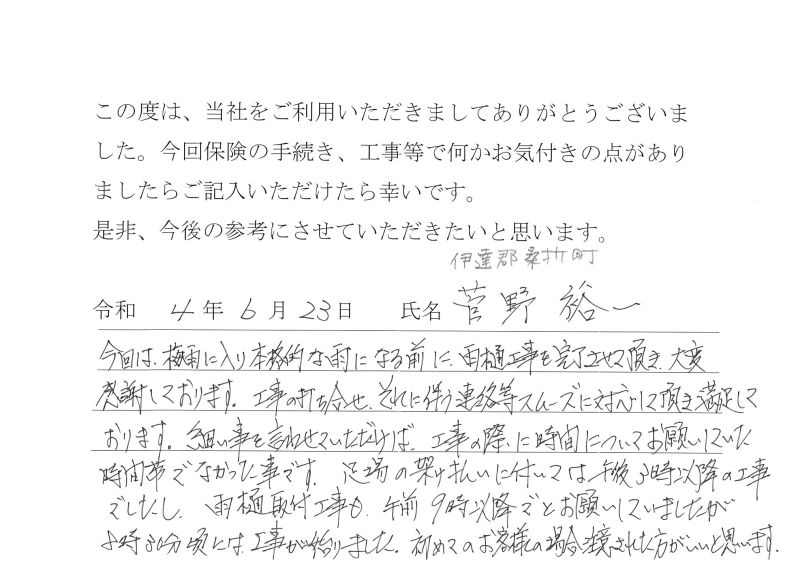 この度は、当社をご利用いただきましてありがとうございま
した。今回保険の手続き、工事等で何かお気付きの点があり
ましたらご記入いただけたら幸いです。
是非、今後の参考にさせていただきたいと思います。
伊達郡桑折町
令和 4 年 6 月 23 日 氏名 菅野 裕一
今回は、梅雨に入り本格的な雨になる前に、雨樋工事を完了させて頂き、大変
感謝しております。工事の打ち合せ、それに伴う連絡等スムーズに対応して頂き満足して
おります。細い事を言わせていただければ、工事の際に時間についてお願いしていた
時間帯でなかった事です。足場の架け払いに付いては午後3時以降の工事
でしたし、雨樋取付工事も、午前9時以降でとお願いしていましたが
8時30分頃には、工事が始りました。初めてのお客様の場合、された方がいいと思います。